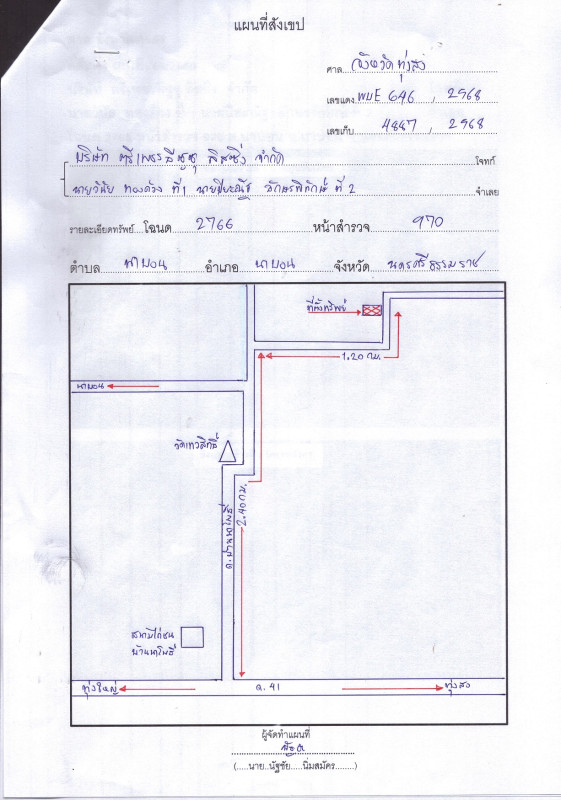 แผนที่สังเขป
ศาล จังหวัดทุ่งสง
เลขแดง ผบE 646 , 2568
เลขเก็บ 4887 , 2568
บริษัท ตรีเพชรอีซูซุ ลิสซิ่ง จำกัด โจทก์
นายวินัย ทองด้วง ที่1 นายปิยะณัฐ อักษรพิทักษ์ ที่ 2 จำเลย
รายละเอียดทรัพย์ โฉนด 2766 หน้าสำรวจ 970
ตำบล นาบอน อำเภอ นาบอน จังหวัด นครศรีธรรมราช
ที่ตั้งทรัพย์
1.20 กม.
นาบอน
วัดเทวสิทธิ์
2.40 กม.
ถ.บ้านนาโพธิ์
สนามไก่ชน
บ้านนาโพธิ์
ทุ่งใหญ่
ถ. 41
ทุ่งสง
ผู้จัดทำแผนที่
(.....นาย..นัฐชัย.....นิ่มสมัคร........)